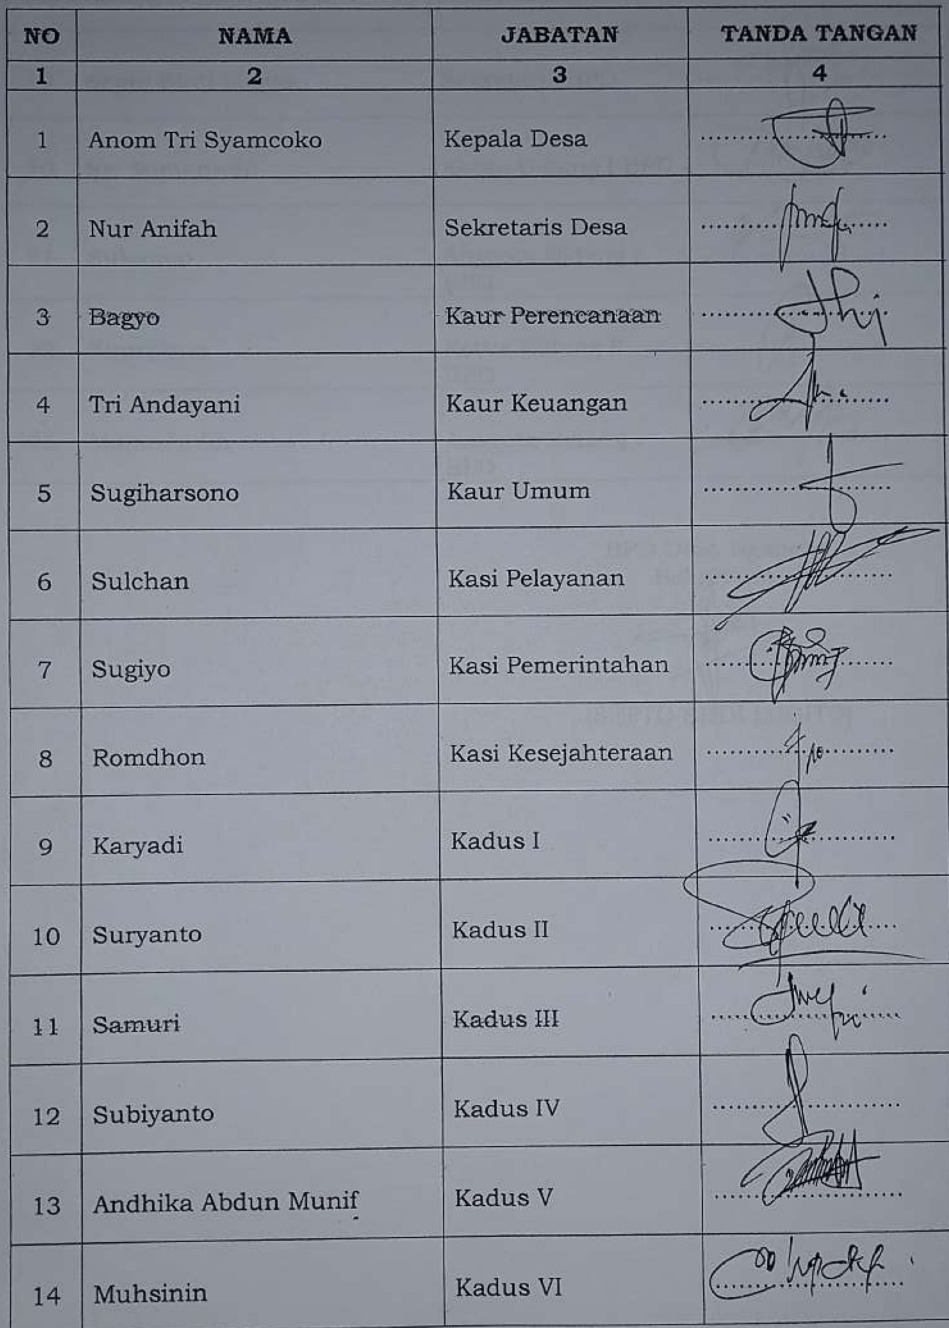 NO NAMA JABATAN TANDA TANGAN
1 2 3 4
1 Anom Tri Syamcoko Kepala Desa ....................
2 Nur Anifah Sekretaris Desa ....................
3 Bagyo Kaur Perencanaan ....................
4 Tri Andayani Kaur Keuangan ....................
5 Sugiharsono Kaur Umum ....................
6 Sulchan Kasi Pelayanan ....................
7 Sugiyo Kasi Pemerintahan ....................
8 Romdhon Kasi Kesejahteraan ....................
9 Karyadi Kadus I ....................
10 Suryanto Kadus II ....................
11 Samuri Kadus III ....................
12 Subiyanto Kadus IV ....................
13 Andhika Abdun Munif Kadus V ....................
14 Muhsinin Kadus VI ....................